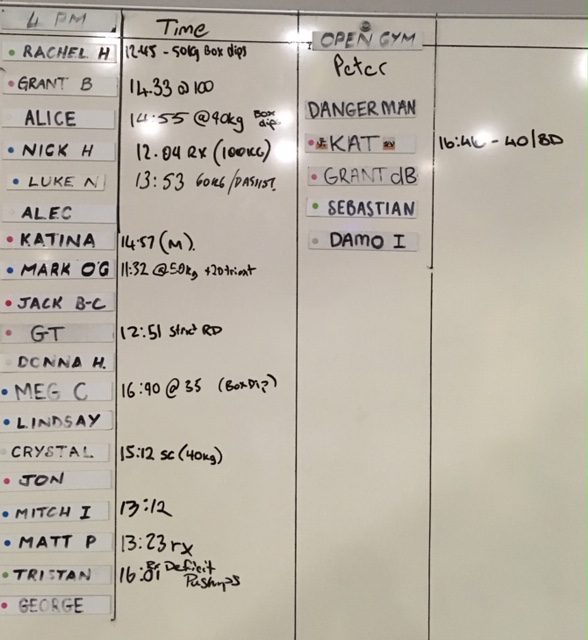 4 PM Time
RACHEL H 12:45 - 50kg Box dips
GRANT B 14.33 @ 100
ALICE 14:55 @ 40kg Box dip
NICK H 12.04 RX (100KG)
LUKE N 13:53 60KG /
ALEC
KATINA 14:57 (M).
MARK O'G 11:32 @ 50kg
JACK B-C
GT 12:51 strict RD
DONNA H.
MEG C 16:40 @ 35 (Box Dip)
LINDSAY
CRYSTAL 15:12 SC (40kg)
JON
MITCH I 13:12
MATT P 13:23 rx
TRISTAN 16:01 Deficit Pushups
GEORGE
OPEN GYM
Peter
DANGERMAN
KAT 16:46 - 40/BD
GRANT dB
SEBASTIAN
DAMO I